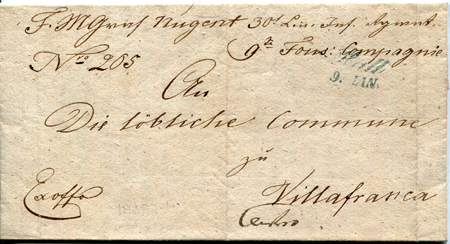 F. M. Graf Nugent 30t Lin. Inf. Regmt.
9n Fous: Compagnie
No 265
9. JUN.
An
Die löbliche Commune
zu
Exoffo Villafranca